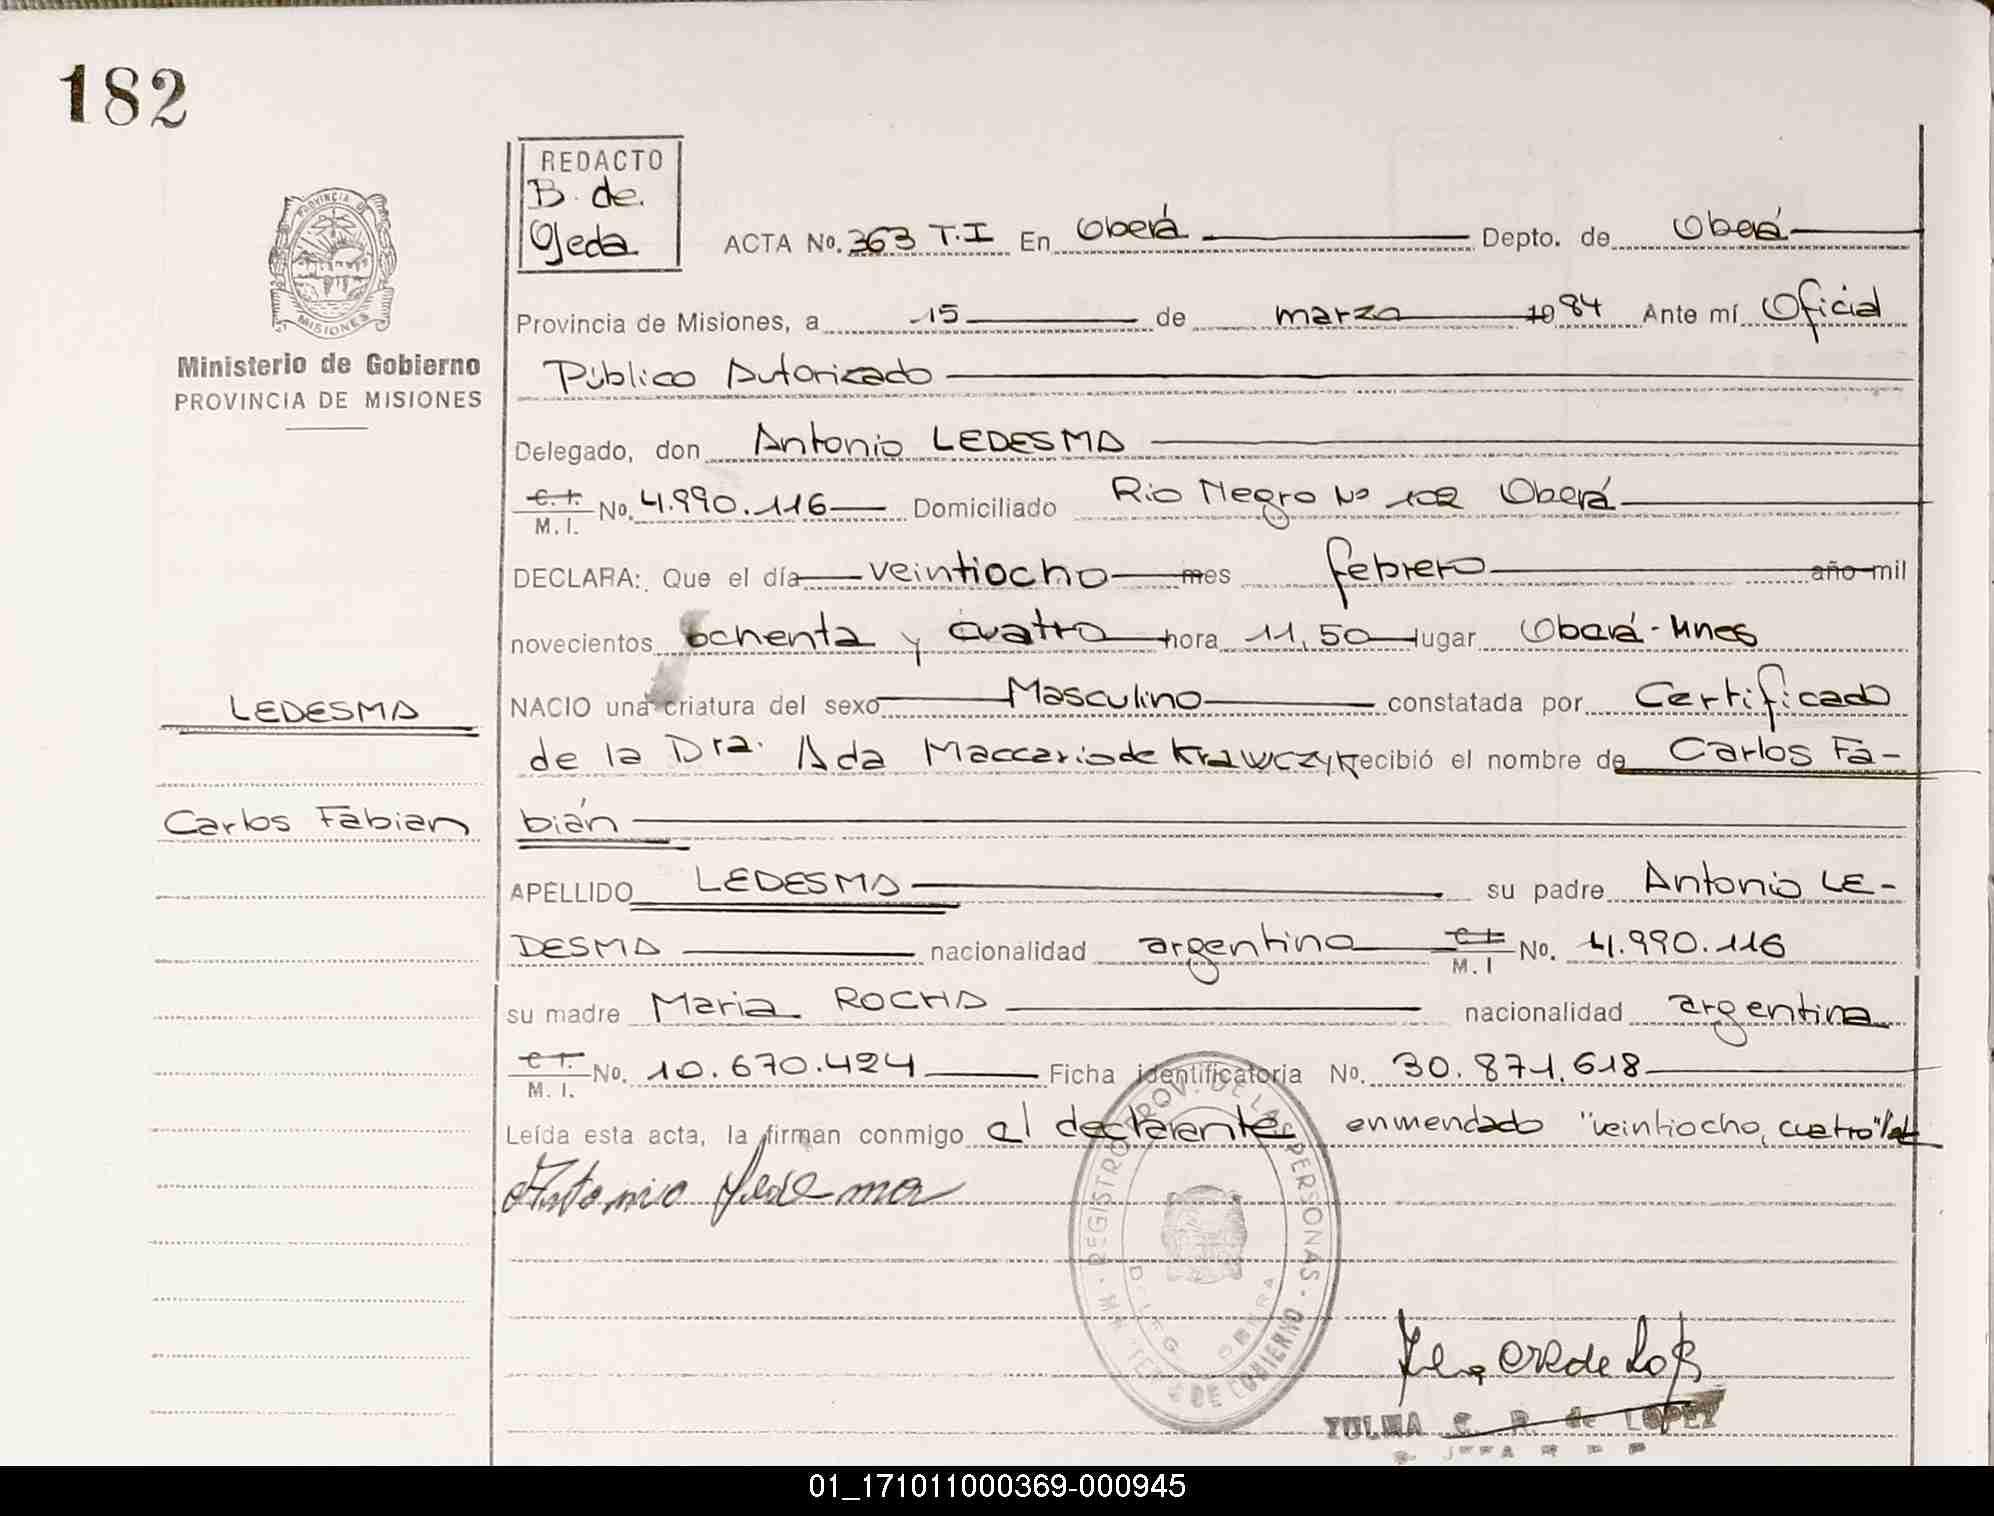 182
REDACTO
B. de.
Ojeda
ACTA No. 363 T.I En Oberá Depto. de Oberá
PROVINCIA DE
MISIONES
Provincia de Misiones, a 15 de marzo 1984 Ante mí Oficial
Ministerio de Gobierno
PROVINCIA DE MISIONES
Público Autorizado
Delegado, don Antonio LEDESMA
C.I. M.I. No. 4.990.116 Domiciliado Rio Negro Nº 102 Oberá
DECLARA: Que el día veintiocho mes febrero año mil
novecientos ochenta y cuatro hora 11,50 lugar Oberá - Mnes
LEDESMA
NACIO una criatura del sexo Masculino constatada por Certificado
de la Dra. Ada Maccario de Krawczyk recibió el nombre de Carlos Fa-
Carlos Fabian
bián
APELLIDO LEDESMA su padre Antonio LE-
DESMA nacionalidad argentino C.I. M.I No. 4.990.116
su madre Maria ROCHA nacionalidad argentina
C.I. M.I. No. 10.670.424 Ficha identificatoria No. 30.871.618
Leída esta acta, la firman conmigo el declarante enmendado "veintiocho, cuatro"
Antonio Ledesma
REGISTRO PROV. DE LAS PERSONAS
DE GOBIERNO
OBERA
C. R. de LOPEZ
01_171011000369-000945